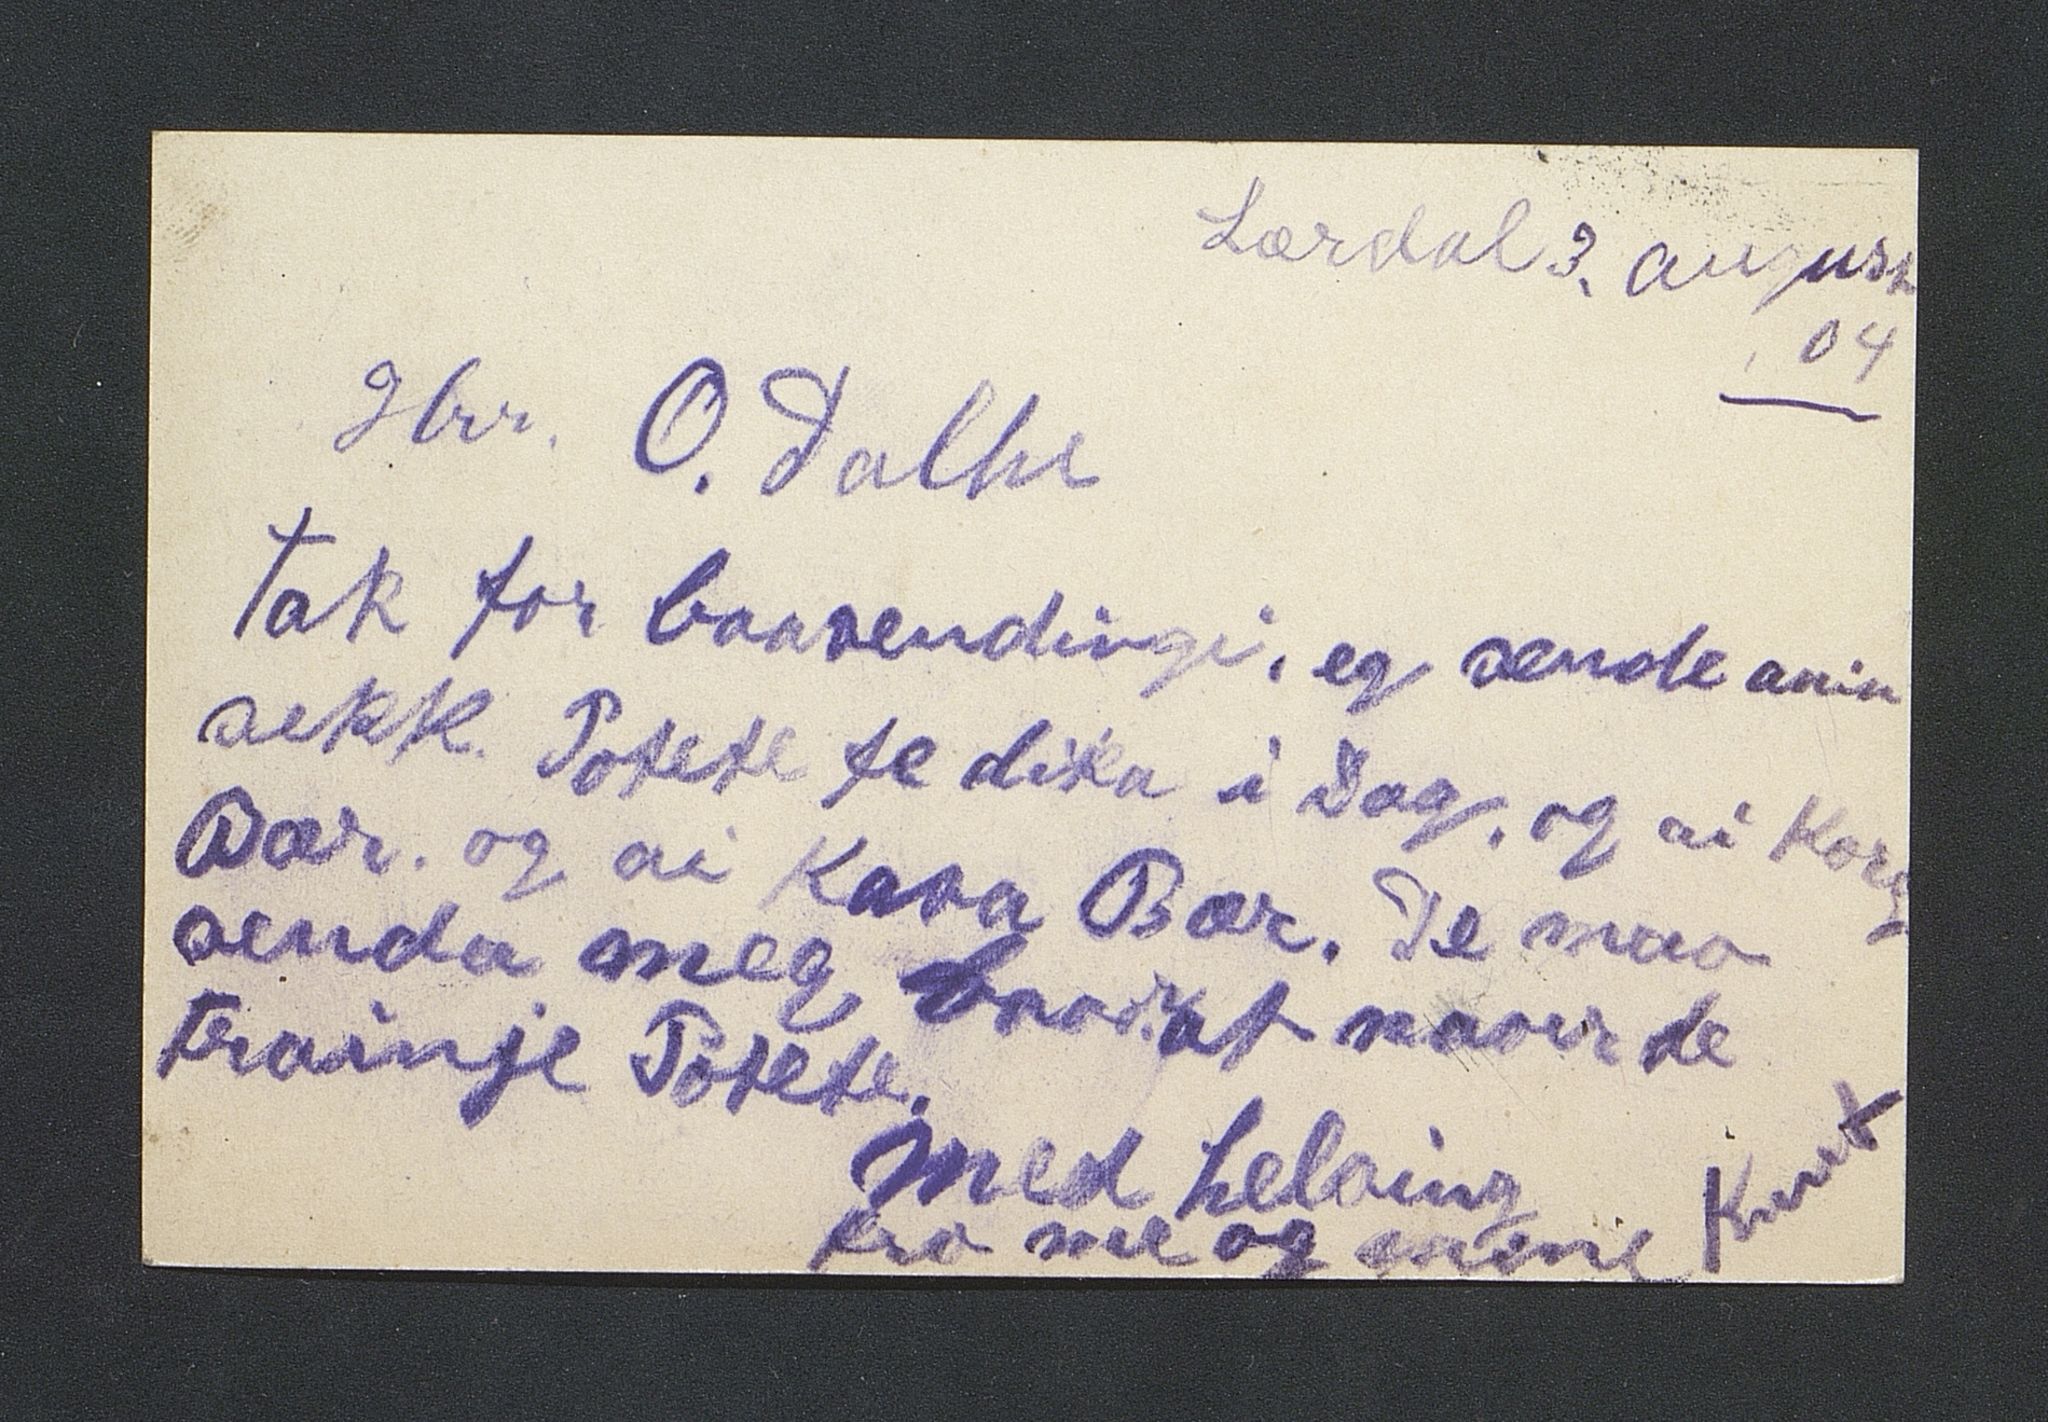 Lærdal 3. august
04
Hrr. O. Dalhe
Tak for baasendingi. eg sende aain
sekk Potete te dika i Dag. og ai Korg
Bær. og ai Kasa Bær. De maa
senda meg naar de
trainje Potete.
Med helsing
fra me og mine Knut